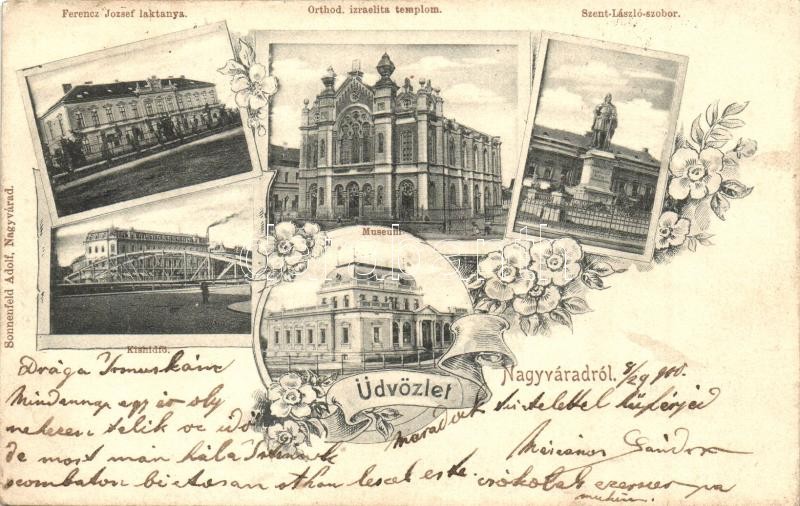 Ferencz József laktanya.
Orthod. izraelita templom.
Szent-László-szobor.
Sonnenfeld Adolf, Nagyvárad.
Kishidfő.
Museum
Üdvözlet
Nagyváradról. 8/29 900.
Drága
Mindennap egy év oly
nehezen telik
de most már hála
szombaton biztosan otthon leszel este.
maradok tisztelettel
Sándor
csókolak ezerszer